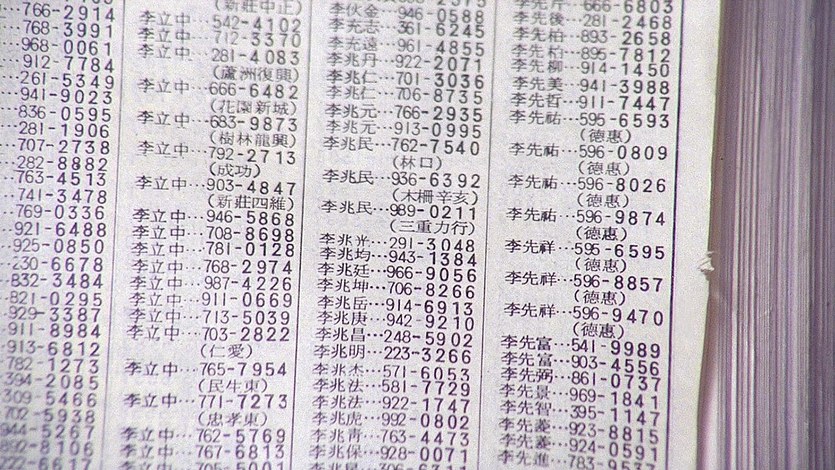 766-2914
768-3991
968-0061
912-7784
261-5349
941-9023
836-0595
281-1906
707-2738
282-8882
763-4513
741-3478
769-0336
921-6488
925-0850
230-6678
832-3484
821-0295
929-3387
911-8984
913-6812
782-1273
394-2085
309-5466
702-5938
944-5267
892-8106
(新莊中正)
李立中…542-4102
李立中…712-3370
李立中…281-4083
(蘆洲復興)
李立中…666-6482
(花園新城)
李立中…683-9873
(樹林龍興)
李立中…792-2713
(成功)
李立中…903-4847
(新莊四維)
李立中…946-5868
李立中…708-8698
李立中…781-0128
李立中…768-2974
李立中…987-4226
李立中…911-0669
李立中…713-5039
李立中…703-2822
(仁愛)
李立中…765-7954
(民生東)
李立中…771-7273
(忠孝東)
李立中…762-5769
李立中…767-6813
李伙金…946-0588
李充志…361-6245
李充遠…961-4855
李兆丹…922-2071
李兆仁…701-3036
李兆仁…706-8735
李兆元…766-2935
李兆元…913-0995
李兆民…762-7540
(林口)
李兆民…936-6392
(木柵辛亥)
李兆民…989-0211
(三重力行)
李兆光…291-3048
李兆均…943-1384
李兆廷…966-9056
李兆坤…706-8266
李兆岳…914-6913
李兆庚…942-9210
李兆昌…248-5902
李兆明…223-3266
李兆杰…571-6053
李兆法…581-7729
李兆法…922-1747
李兆虎…992-0802
李兆青…763-4473
李兆保…928-0071
666-6803
李先後…281-2468
李先柏…893-2658
李先柏…895-7812
李先柳…914-1450
李先美…941-3988
李先哲…911-7447
李先祐…595-6593
(德惠)
李先祐…596-0809
(德惠)
李先祐…596-8026
(德惠)
李先祐…596-9874
(德惠)
李先祥…595-6595
(德惠)
李先祥…596-8857
(德惠)
李先祥…596-9470
(德惠)
李先富…541-9989
李先富…903-4556
李先弼…861-0737
李先景…969-1841
李先智…395-1147
李先菱…923-8815
李先菱…924-0591